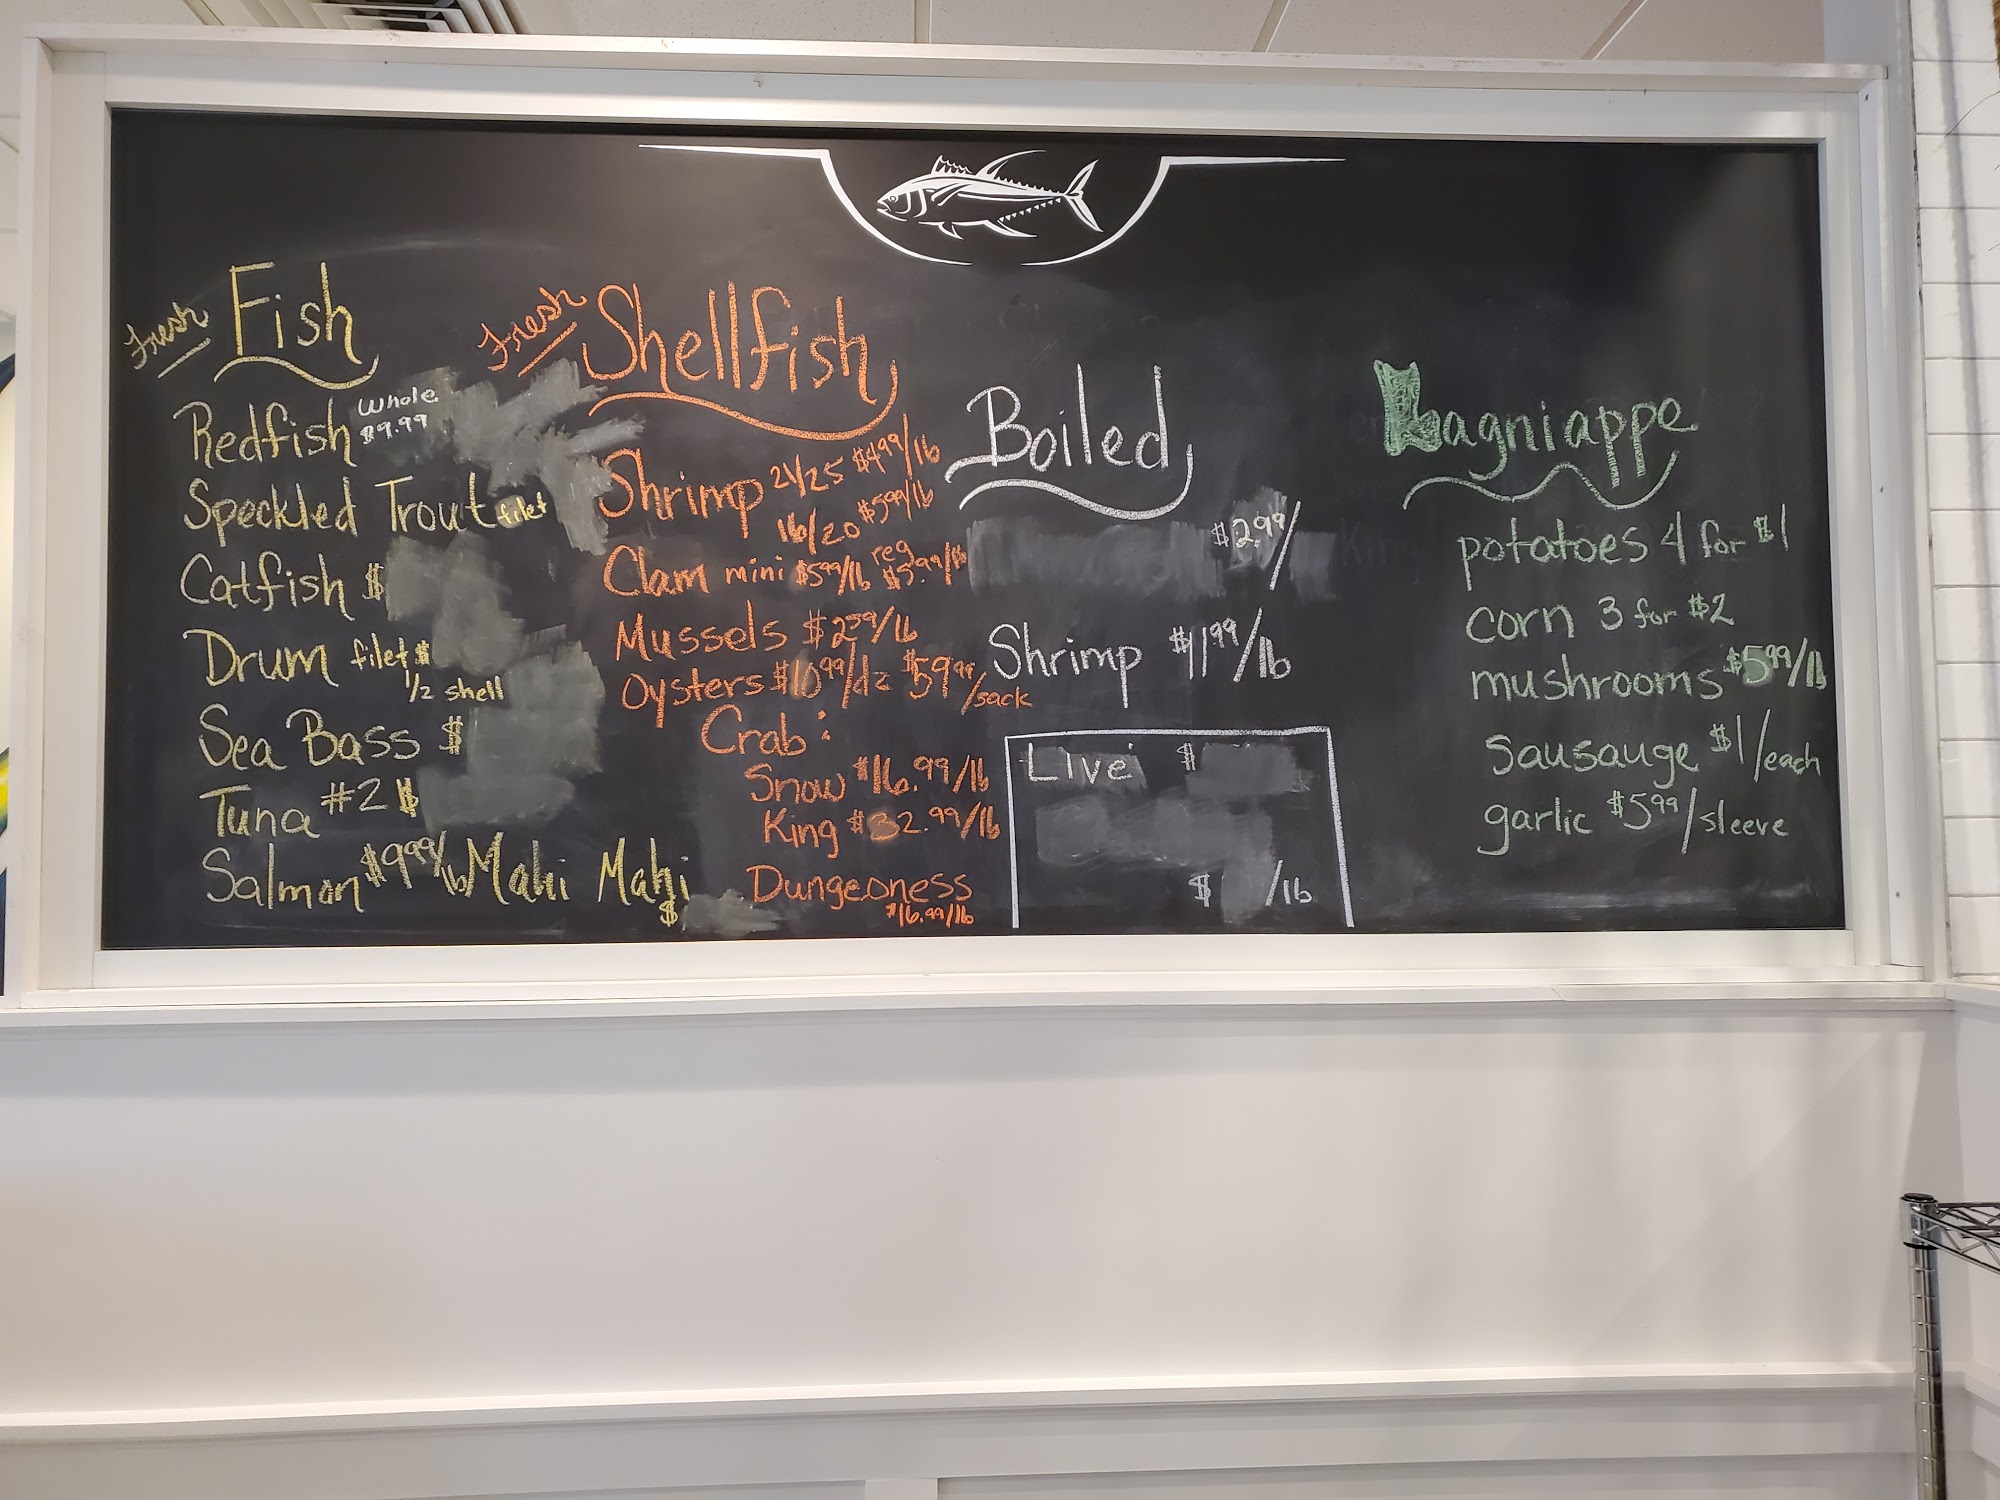 Fresh Fish
Redfish Whole $9.99
Speckled Trout filet
Catfish $
Drum filet $
1/2 shell
Sea Bass $
Tuna #2 $
Salmon $9.99/lb Mahi Mahi
$
Fresh Shellfish
Shrimp 21/25 $4.99/lb
16/20 $5.99/lb
Clam mini $5.99/lb reg $5.99/lb
Mussels $2.99/lb
Oysters $10.99/dz $59.99/sack
Crab:
Snow $16.99/lb
King $32.99/lb
Dungeoness
$16.99/lb
Boiled
$2.99/
Shrimp $11.99/lb
Live $
$ /lb
Lagniappe
potatoes 4 for $1
corn 3 for $2
mushrooms $5.99/lb
sausauge $1/each
garlic $5.99/sleeve